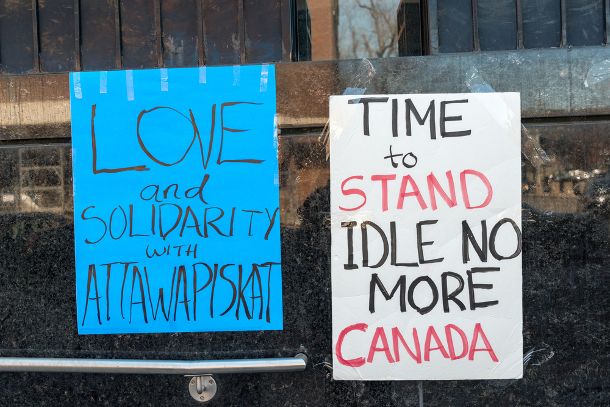 LOVE
and
SOLIDARITY
WITH
ATTAWAPISKAT
TIME
to
STAND
IDLE NO
MORE
CANADA